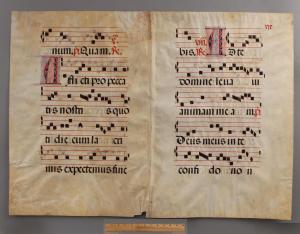 num. p. Quam. R.
Asti cti pro pecca
tis nostri s quo
ti die cum la cri
mis expectemus fine
bis. R. Ad te
domine leua ui
animam me a m p.
Deus meus in te
confi do no n